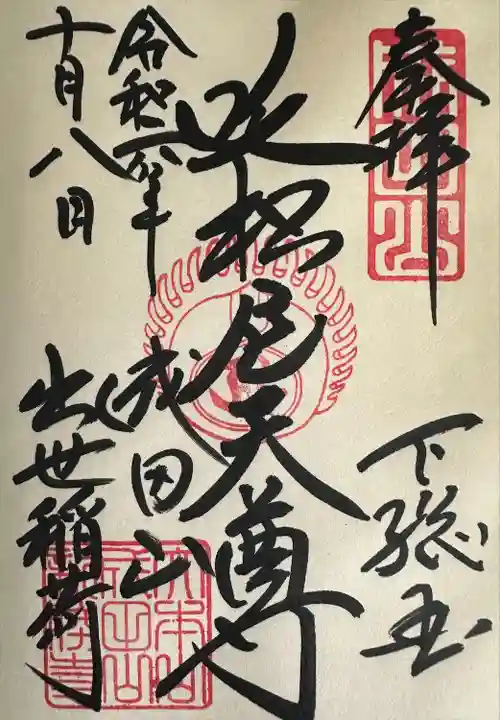 奉拝
下総国
吒枳尼天尊
成田山
出世稲荷
令和六年
十月八日